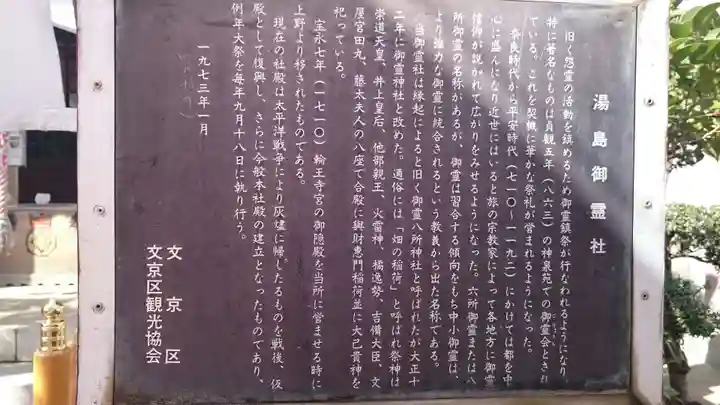 湯島御霊社
旧く怨霊の活動を鎮めるため御霊鎮祭が行なわれるようになり、
特に著名なものは貞観五年(八六三)の神泉苑での御霊会とされ
ている。これを契機に華かな祭礼が営まれるようになった。
奈良時代から平安時代(七一〇〜一一九二)にかけては都を中
心に盛んになり近世にはいると旅の宗教家によって各地方に御霊
信仰が説かれて広がりをみせるようになった。六所御霊または八
所御霊の名称があるが、御霊は習合する傾向をもち中小御霊は、
より強力な御霊に統合されるという教義から出た名称である。
当御霊社は縁起によると旧く御霊八所神社と呼ばれたが大正十
二年に御霊神社と改めた。通俗には「畑の稲荷」と呼ばれ祭神は
崇道天皇、井上皇后、他部親王、火雷神、橘逸勢、吉備大臣、文
屋宮田丸、藤太夫人の八座で合殿に興財恵門稲荷並に大己貴神を
祀っている。
宝永七年(一七一〇)輪王寺宮の御隠殿を当所に営ませる時に
上野より移されたものである。
現在の社殿は太平洋戦争により灰燼に帰したるものを戦後、仮
殿として復興し、さらに今般本社殿の建立となったものであり、
例年大祭を毎年九月十八日に執り行う。
一九七三年一月
文京区
文京区観光協会